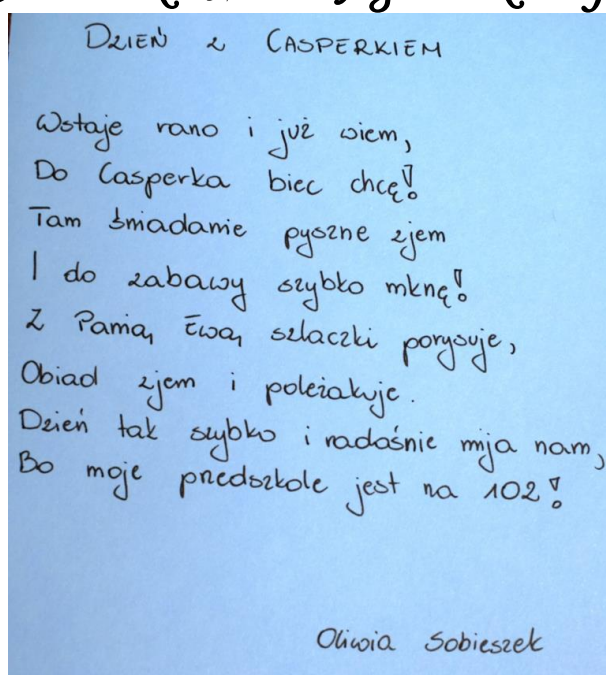 DZIEŃ Z CASPERKIEM
Wstaje rano i już wiem,
Do Casperka biec chcę!
Tam śniadanie pyszne zjem
I do zabawy szybko mknę!
Z Panią Ewą szlaczki porysuje,
Obiad zjem i poleżakuje.
Dzień tak szybko i radośnie mija nam,
Bo moje przedszkole jest na 102!
Oliwia Sobieszek